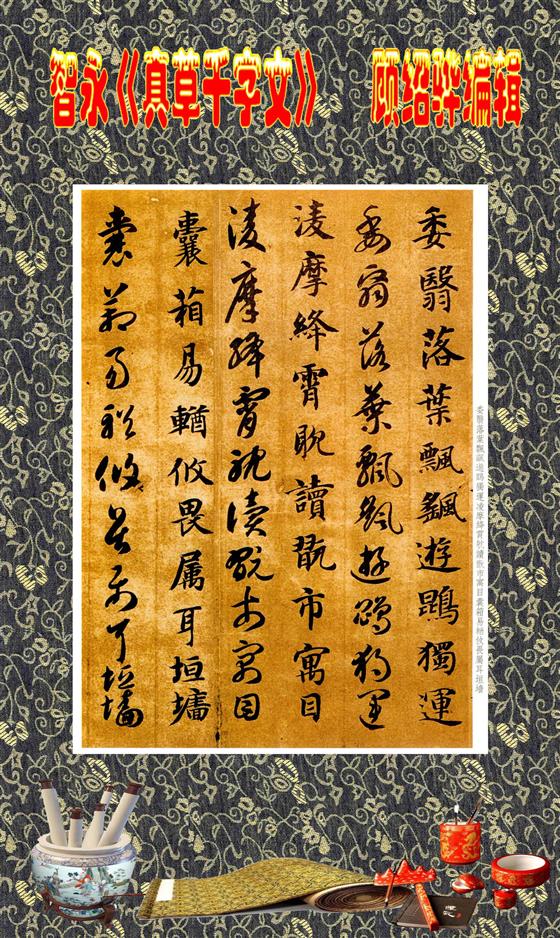 智永《真草千字文》 顾绍骅编辑
委翳落葉飄颻遊鵾獨運
委翳落葉飄颻遊鵾獨運
淩摩絳霄耽讀翫市寓目
淩摩絳霄耽讀翫市寓目
囊箱易輶攸畏属耳垣墻
囊箱易輶攸畏属耳垣墻
委翳落葉飄颻遊鵾獨運凌摩絳霄耽讀翫市寓目囊箱易輶攸畏屬耳垣墙